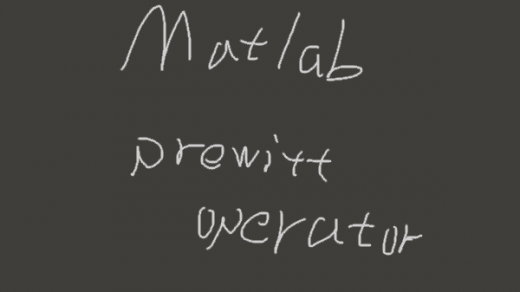 Matlab
prewitt
operator